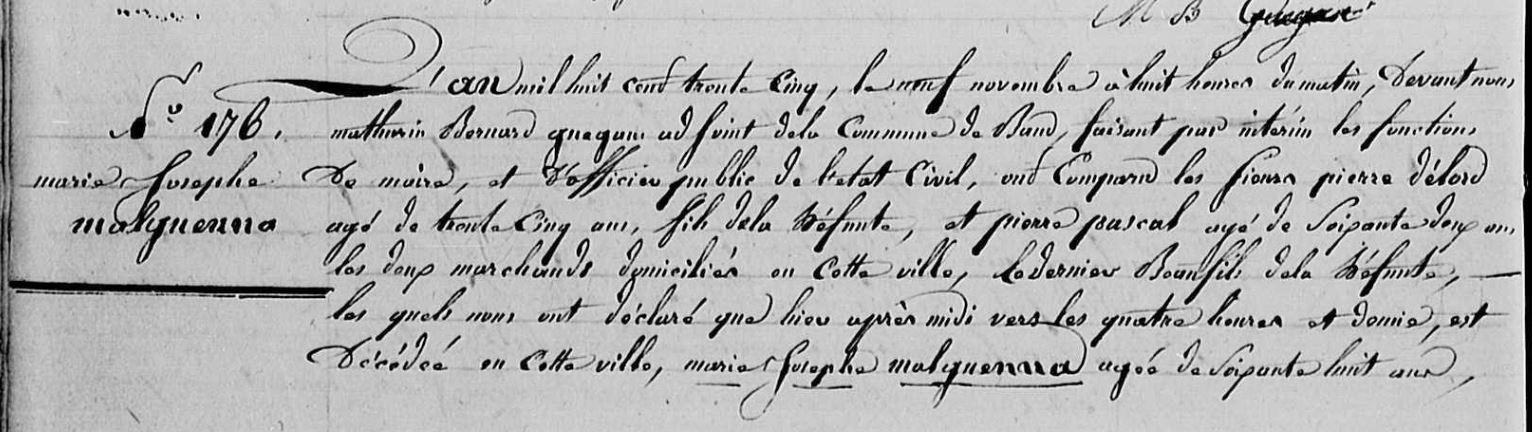 M B Guegan
N.º 176.
marie Josephe
malguenna
L'an mil huit cent trente cinq, le neuf novembre à huit heures du matin, Devant nous
mathurin Bernard guegan adjoint dela Commune de Baud, faisant par intérim les fonctions
De maire, et D'officier public de l'etat Civil, ont Comparu les sieurs pierre délord
agé de trente Cinq ans, fils dela Défunte, et pierre pascal agé de Soixante deux ans
les deux marchands domiciliés en Cette ville, Le dernier Beaufils dela Défunte,
les quels nous ont déclaré que hier après midi vers les quatre heures et demie, est
Décédée en Cette ville, marie Josephe malguenna agée de Soixante huit ans,